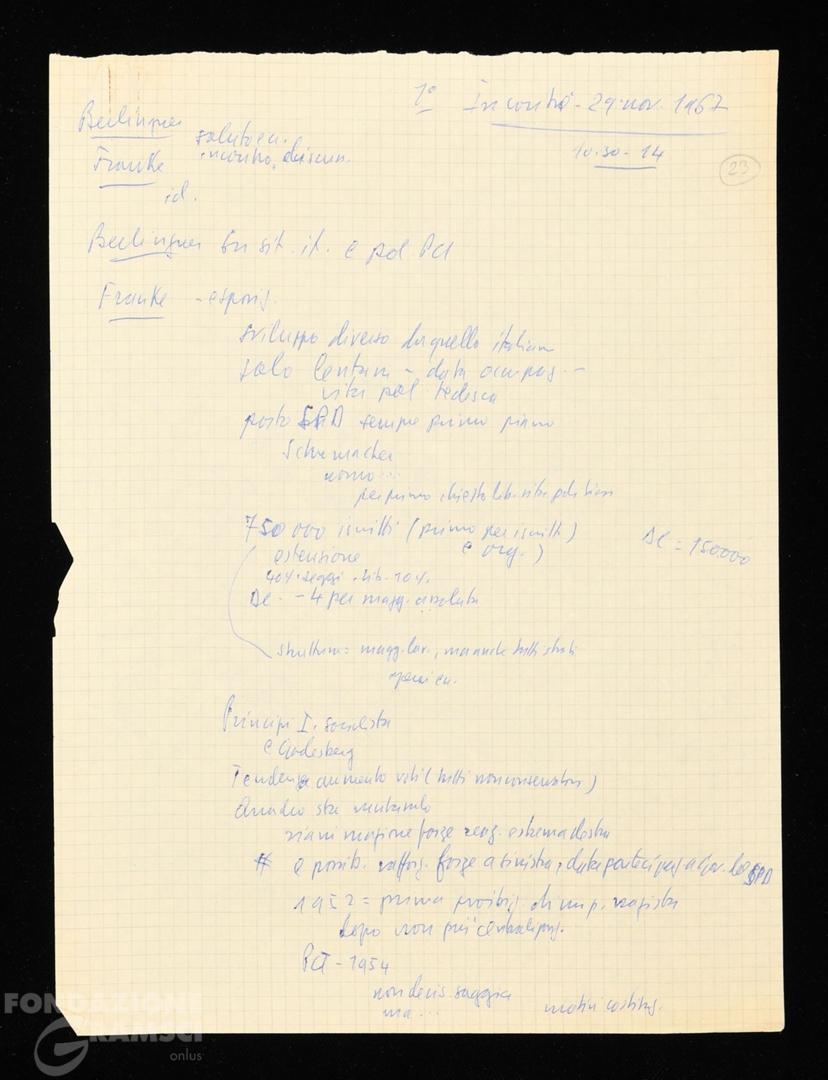 1º Incontro - 29 nov. 1967
10.30 - 14
23
Berlinguer saluto ecc.
Franke incontro, discuss.
id.
Berlinguer su sit. it. e pol. PCI
Franke - esposiz.
sviluppo diverso da quello italiano
solo lentam - data occupaz. -
vita pol tedesca
posto SPD sempre primo piano
Schumacher
uomo ...
per primo chiesto lib. vita pol.
750000 iscritti (primo per iscritti DC = 150.000
e org.)
estensione
40% seggi
DC - 4 per magg. assoluta
struttura = magg. lav., ma anche tutti strati
operai ecc.
Principi I. socialista
e Godesberg
Tendenza aumento voti (tutti non conservatori)
Quadro sta mutando
rianimazione forze reaz. estrema destra
# e possib. rafforz. forze a sinistra, data partecipaz a Gov. SPD
1952 = prima proibiz. di nazista
dopo non più
PCT - 1954
non decis. saggia
ma ... motivi costituz.
FONDAZIONE
GRAMSCI
onlus